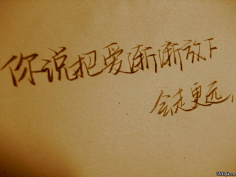 你说把爱渐渐放下
会走更远，